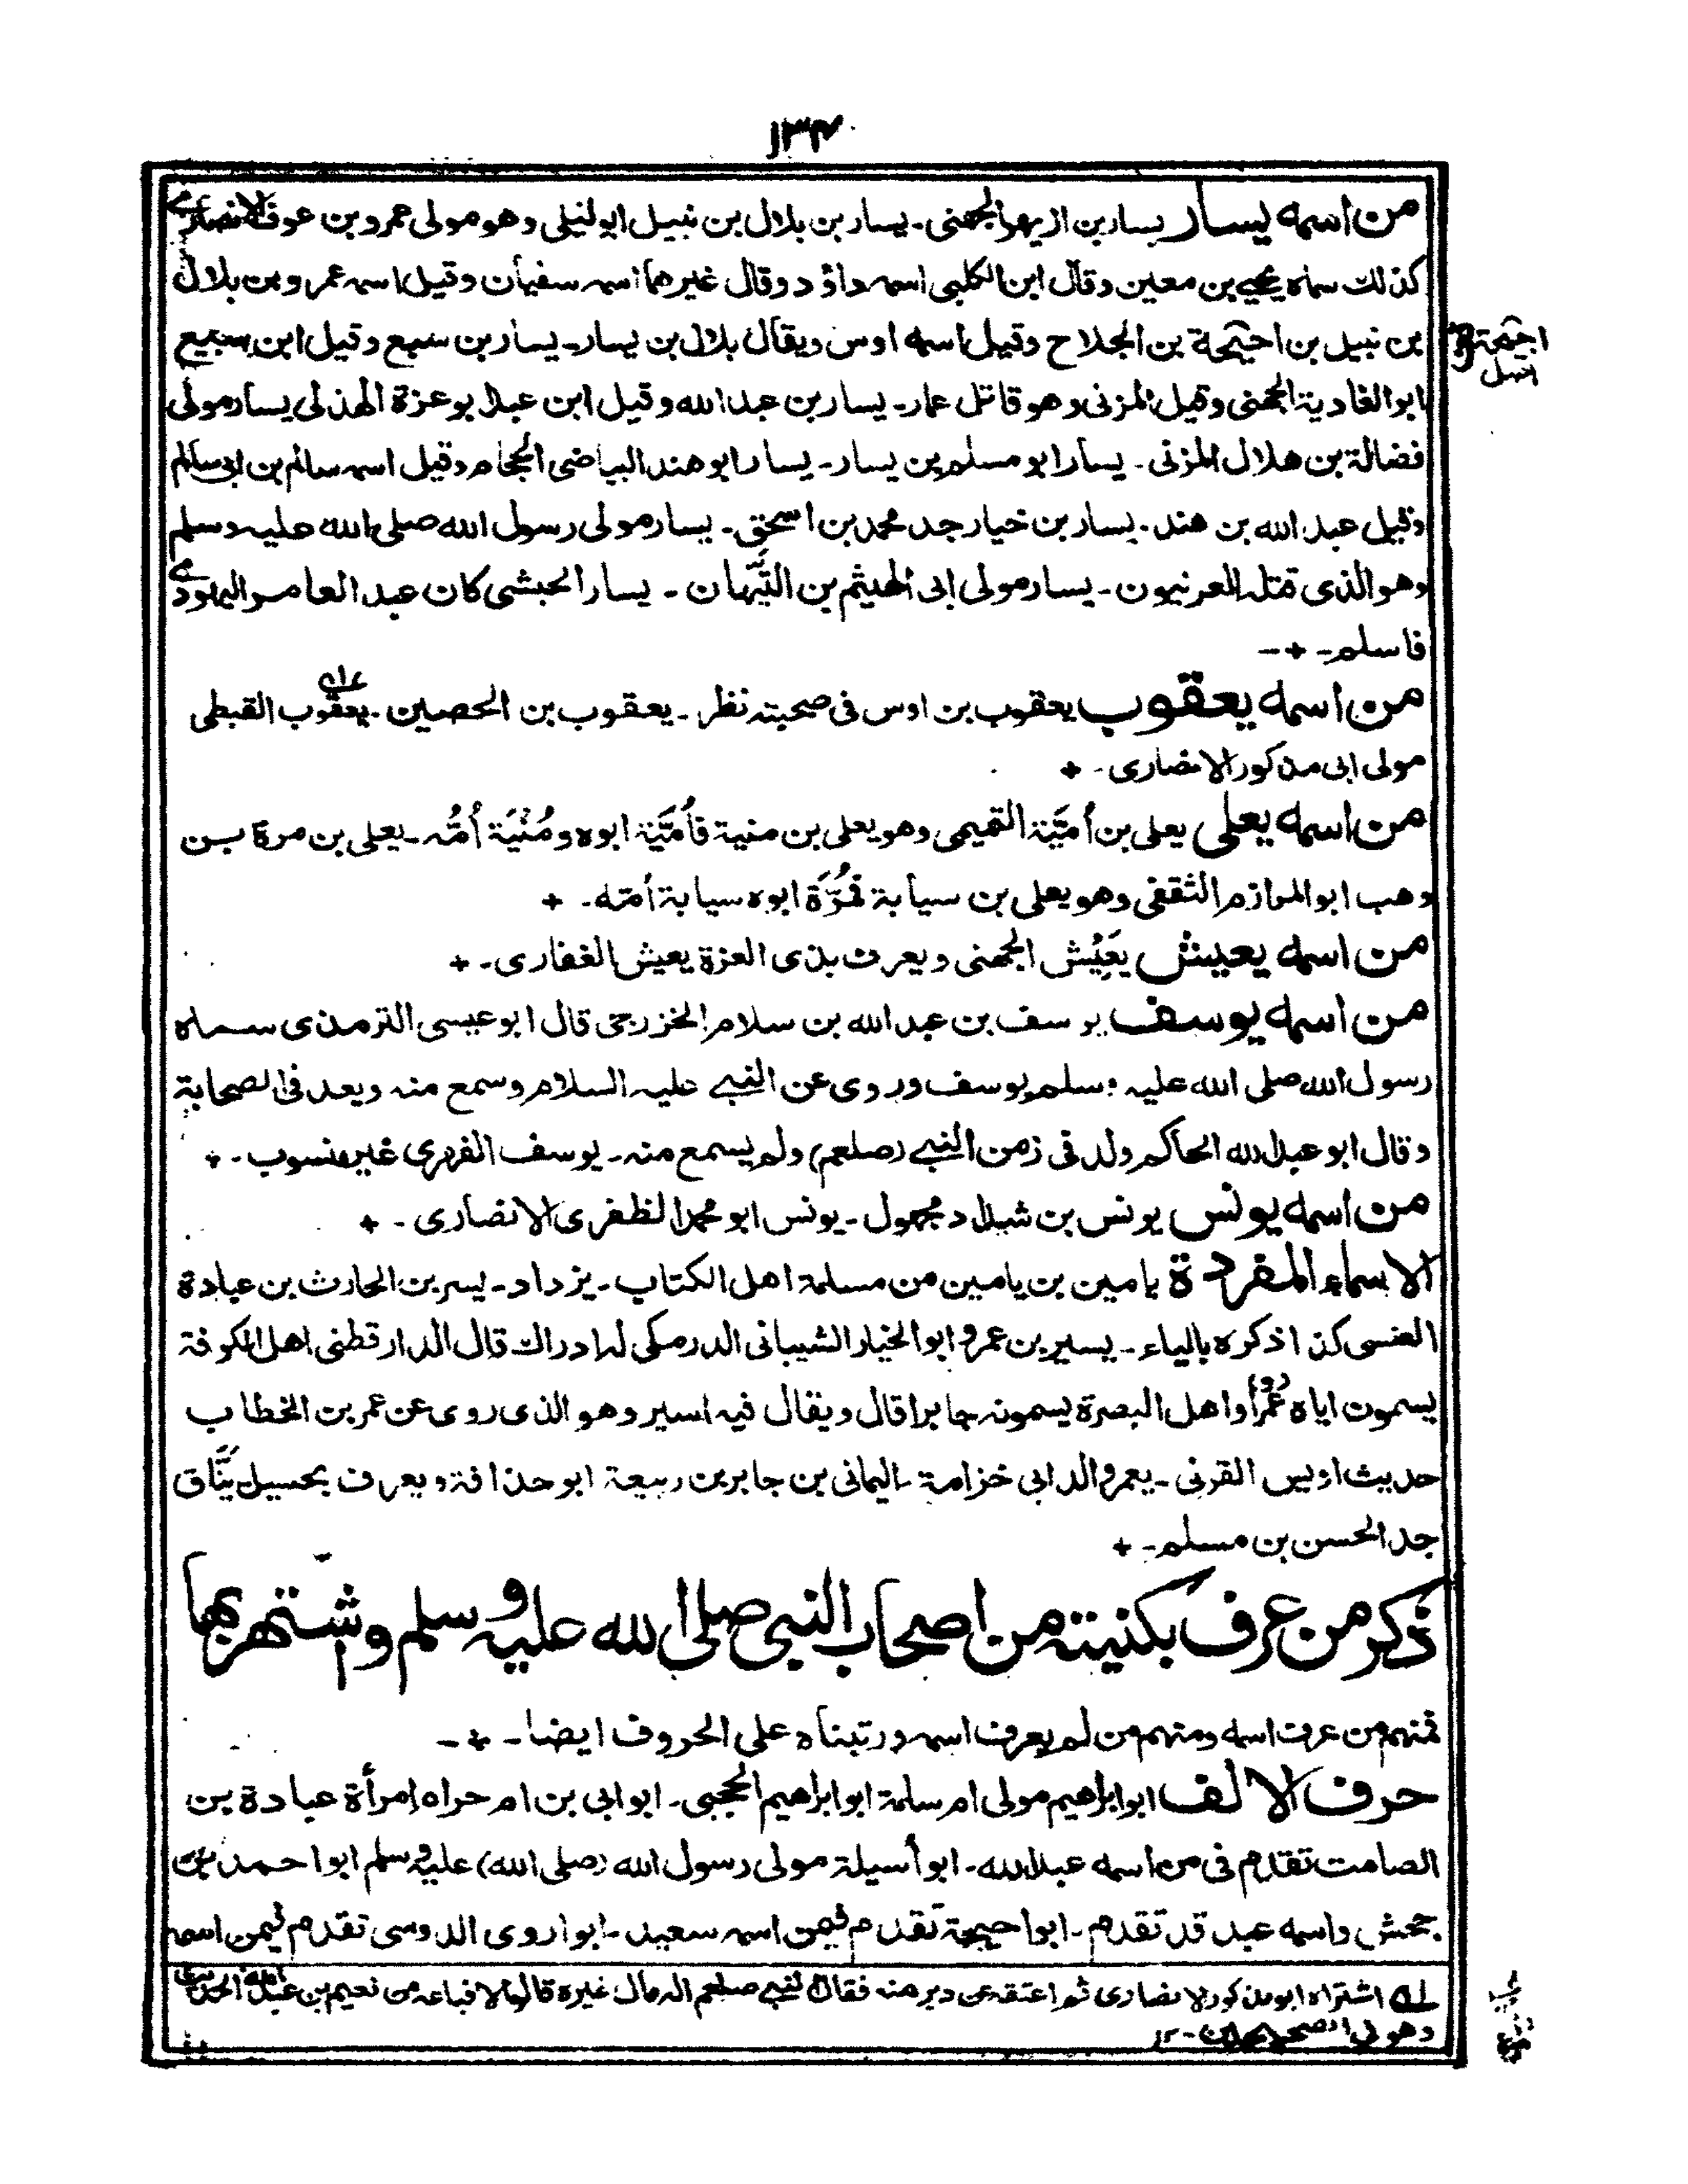 ١٣٤
من اسمه يسار يسار بن ازيهر الجهنى ـ يسار بن بلال بن نبيل ابو ليلى وهو مولى عمرو بن عوف الانصارى
كذلك سماه يحيى بن معين وقال ابن الكلبى اسمه داؤد وقال غيرهما اسمه سفيان وقيل اسمه عمرو بن بلال
بن نبيل بن احيحة بن الجلاح وقيل اسمه اوس ويقال بلال بن يسار ـ يسار بن سبع وقيل ابن سبيع
ابو الغادية الجهنى وقيل المزنى وهو قاتل عمار ـ يسار بن عبد الله وقيل ابن عبد ابو عزة الهذلى يسار مولى
فضالة بن هلال المزنى ـ يسار ابو مسلم بن يسار ـ يسار ابو هند البياضى الحجام وقيل اسمه سالم بن ابى سالم
وقيل عبد الله بن هند ـ يسار بن خيار جد محمد بن اسحق ـ يسار مولى رسول الله صلى الله عليه وسلم
وهو الذى قتله العرنيون ـ يسار مولى ابى الهيثم بن التَّيِّهان ـ يسار الحبشى كان عبد العامر اليهودى
فاسلم ـ + ـ
من اسمه يعقوب يعقوب بن اوس فى صحبته نظر ـ يعقوب بن الحصين ـ يعقوب القبطى
مولى ابى مذكور الانصارى ـ +
من اسمه يعلى يعلى بن أُمَيَّة التميمى وهو يعلى بن منية فأُمَيَّة ابوه ومُنْيَة أُمُّه ـ يعلى بن مرة بن
وهب ابو المرازم الثقفى وهو يعلى بن سيابة فمُرَّة ابوه سيابة أمه ـ +
من اسمه يعيش يَعِيْش الجهنى ويعرف بذى العزة يعيش الغفارى ـ +
من اسمه يوسف يوسف بن عبد الله بن سلام الخزرجى قال ابو عيسى الترمذى سماه
رسول الله صلى الله عليه وسلم يوسف وروى عن النبى عليه السلام وسمع منه ويعد فى الصحابة
وقال ابو عبد الله الحاكم ولد فى زمن النبى (صلعم) ولم يسمع منه ـ يوسف الفهرى غير منسوب ـ +
من اسمه يونس يونس بن شداد مجهول ـ يونس ابو محمد الظفرى الانصارى ـ +
الاسماء المفردة يامين بن يامين من مسلمة اهل الكتاب ـ يزداد ـ يسر بن الحارث بن عبادة
العنسى كذا ذكره بالياء ـ يسير بن عمرو ابو الخيار الشيبانى الدرمكى له ادراك قال الدارقطنى اهل الكوفة
يسمون اياه عُمَرًا (و) واهل البصرة يسمونه جابرا قال ويقال فيه اسير وهو الذى روى عن عمر بن الخطاب
حديث اويس القرنى ـ يعمر والد ابى خزامة ـ اليمانى بن جابر بن ربيعة ابو حذافة ويعرف بحسيل يَنَّاق
جد الحسن بن مسلم ـ +
ذكر من عرف بكنيته من اصحاب النبى صلى الله عليه وسلم واشتهر بها
فمنهم من عرف اسمه ومنهم من لم يعرف اسمه ورتبناه على الحروف ايضا ـ + ـ
حرف الالف ابو ابراهيم مولى ام سلمة ابو ابراهيم الحجبى ـ ابو ابى بن ام حراه إمرأة عبادة بن
الصامت تقدم فى من اسمه عبد الله ـ ابو أسيلة مولى رسول الله (صلى الله) عليه وسلم ابو احمد بن
جحش واسمه عبد قد تقدم ـ ابو احيحة تقدم فيمن اسمه سعيد ـ ابو اروى الدوسى تقدم فيمن اسمه
له اشتراه ابو مذكور الانصارى ثم اعتقه عن دبر منه فقال النبى صلعم اله مال غيره قالوا لا فباعه من نعيم بن عبد الله
وهو فى الصحيحين ـ ١٢